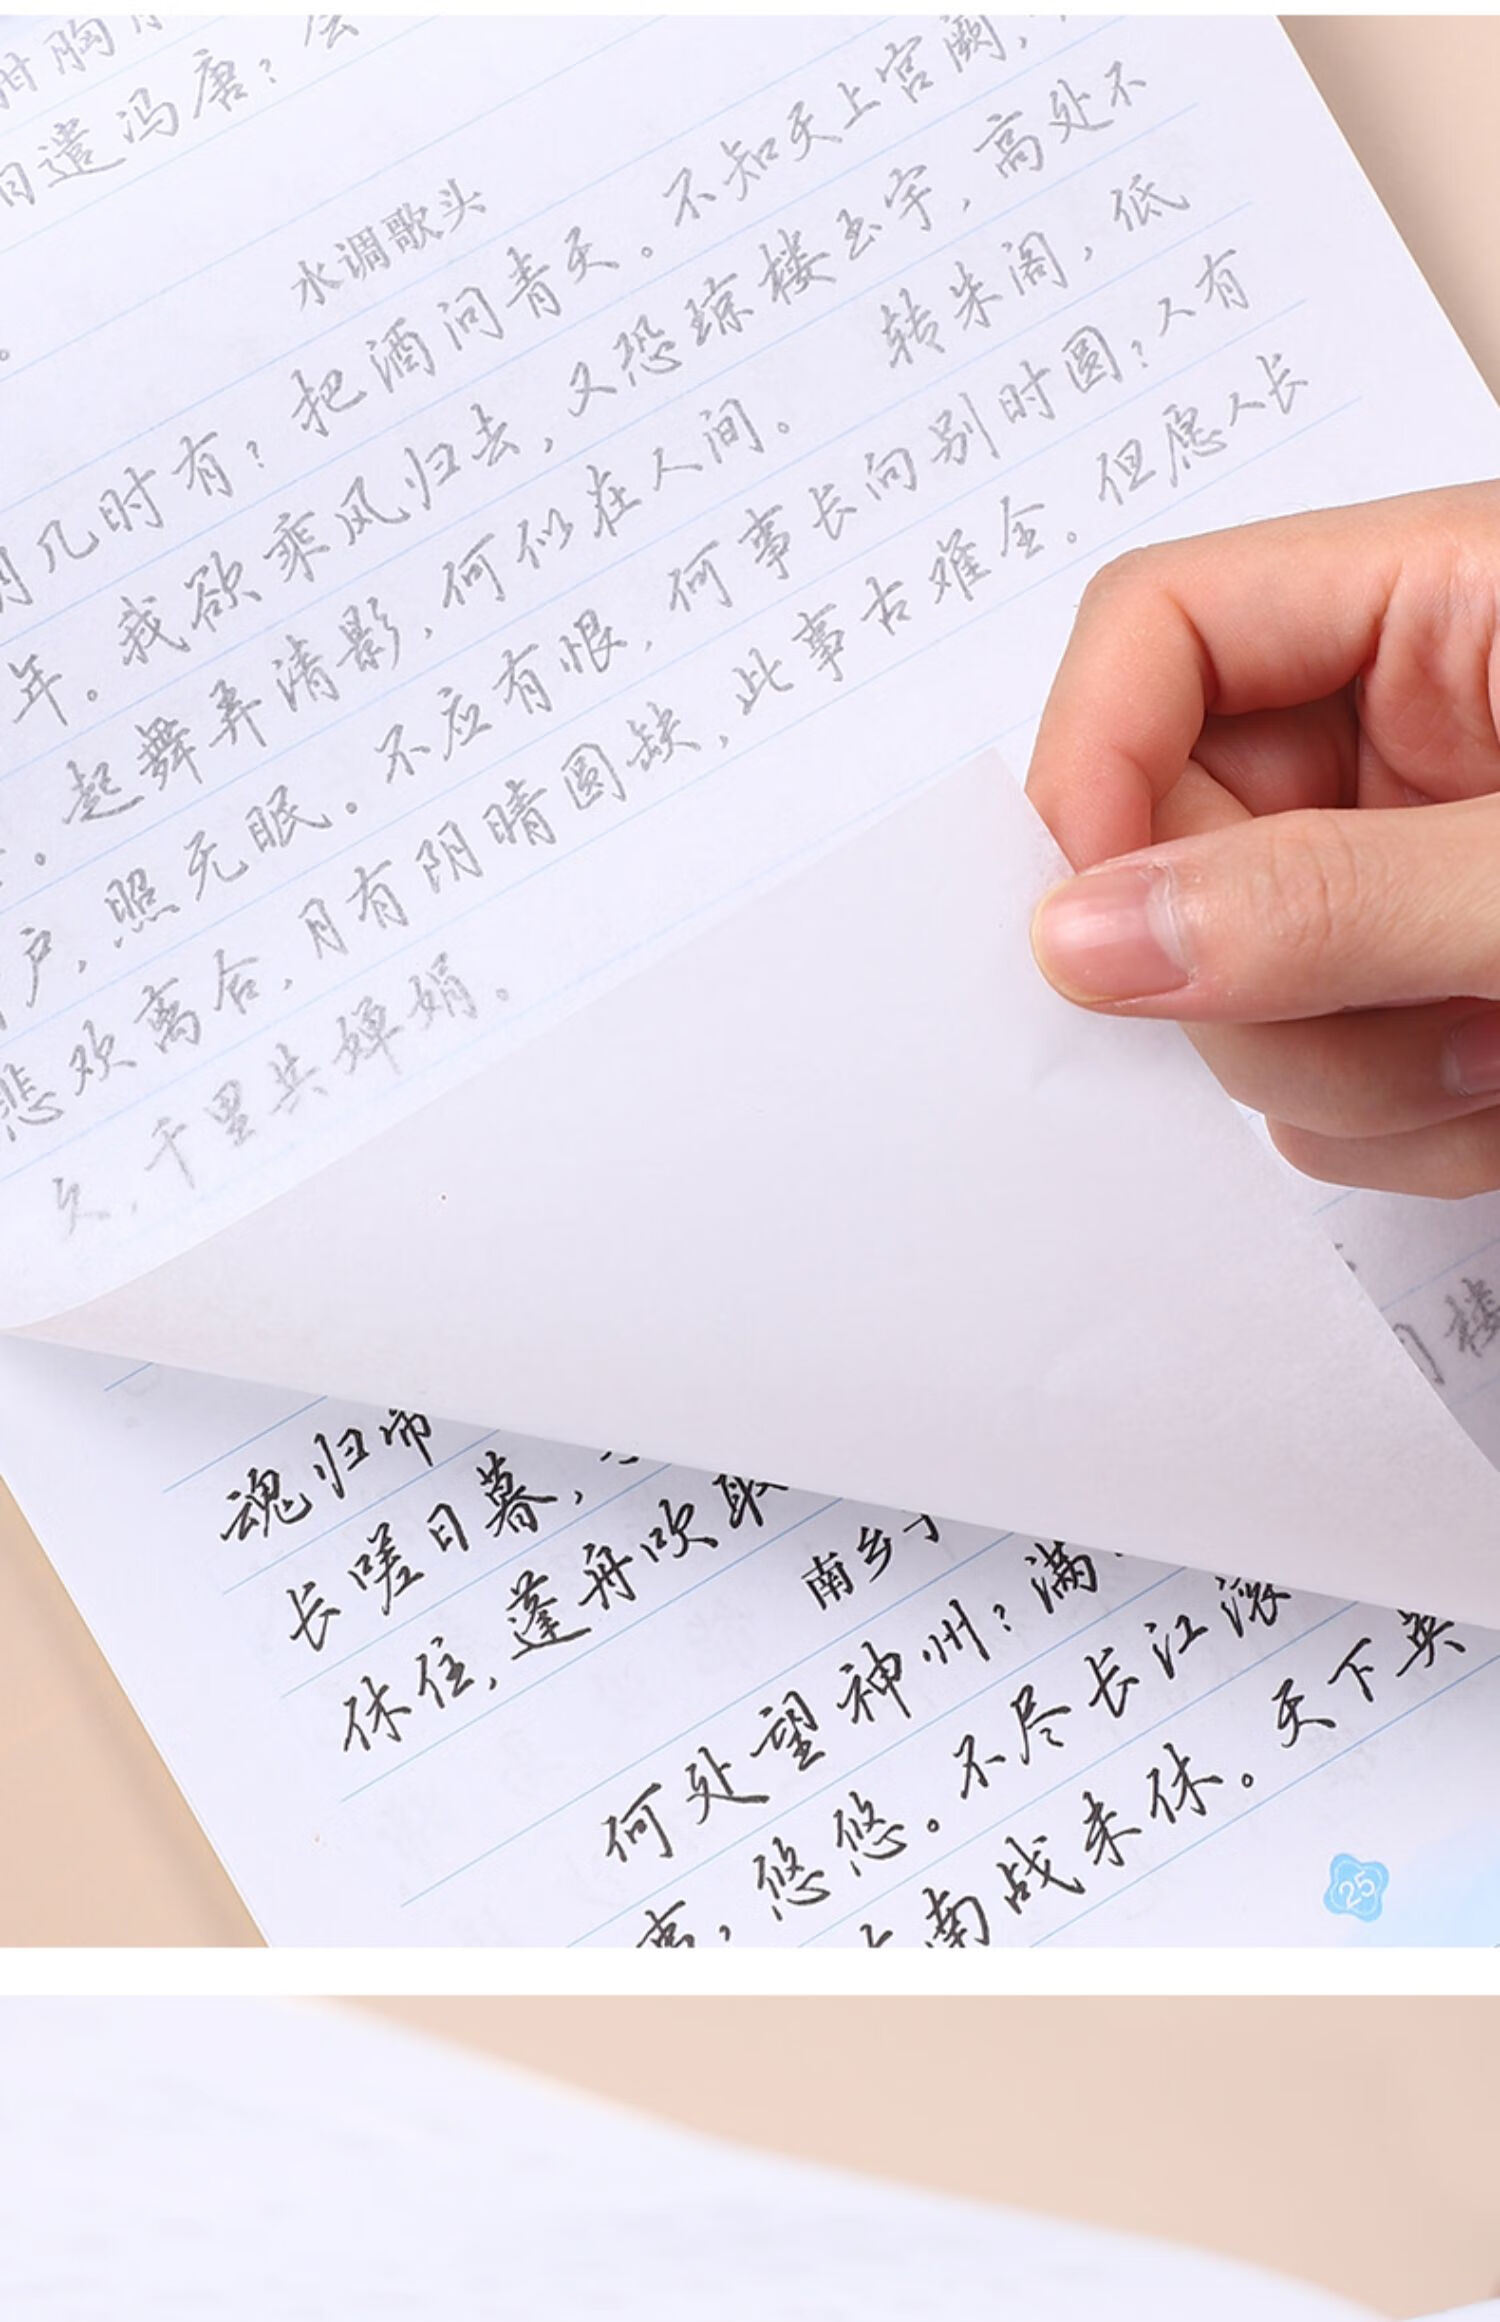 酣胸
日遣冯唐？会
水调歌头
月几时有？把酒问青天。不知天上宫阙，
年。我欲乘风归去，又恐琼楼玉宇，高处不
。起舞弄清影，何似在人间。 转朱阁，低
户，照无眠。不应有恨，何事长向别时圆？人有
悲欢离合，月有阴晴圆缺，此事古难全。但愿人长
久，千里共婵娟。
楼
魂归帝
长嗟日暮，
休住，蓬舟吹取
南乡子
何处望神州？满
悠悠。不尽长江滚
南战未休。天下英
25